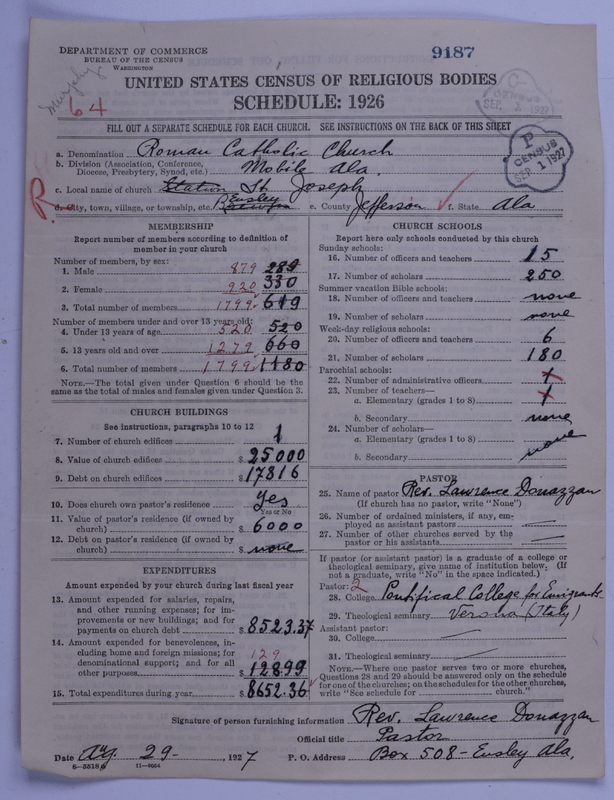 DEPARTMENT OF COMMERCE
BUREAU OF THE CENSUS
WASHINGTON
9187
Murphy
64
UNITED STATES CENSUS OF RELIGIOUS BODIES
SCHEDULE: 1926
CENSUS
SEP 1927
P
CENSUS
SEP 1 1927
FILL OUT A SEPARATE SCHEDULE FOR EACH CHURCH. SEE INSTRUCTIONS ON THE BACK OF THIS SHEET
a. Denomination Roman Catholic Church
b. Division (Association, Conference, Diocese, Presbytery, Synod, etc.) Mobile Ala.
c. Local name of church Station St Joseph
R
d. City, town, village, or township, etc. Ensley e. County Jefferson f. State Ala
MEMBERSHIP
Report number of members according to definition of
member in your church
Number of members, by sex:
1. Male 879 289
2. Female 920 330
3. Total number of members 1799 619
Number of members under and over 13 years old:
4. Under 13 years of age 520 520
5. 13 years old and over 1279 660
6. Total number of members 1799 1180
NOTE.—The total given under Question 6 should be
same as the total of males and females given under Question 3.
CHURCH BUILDINGS
See instructions, paragraphs 10 to 12
7. Number of church edifices 1
8. Value of church edifices $ 25000
9. Debt on church edifices $ 17816
10. Does church own pastor's residence Yes
Yes or No
11. Value of pastor's residence (if owned by
church) $ 6000
12. Debt on pastor's residence (if owned by
church) $ none
EXPENDITURES
Amount expended by your church during last fiscal year
13. Amount expended for salaries, repairs,
and other running expenses; for im-
provements or new buildings; and for
payments on church debt $ 8523.37
14. Amount expended for benevolences, in-
cluding home and foreign missions; for
denominational support; and for all
other purposes 129 $ 128.99
15. Total expenditures during year $ 8652.36
CHURCH SCHOOLS
Report here only schools conducted by this church
Sunday schools:
16. Number of officers and teachers 15
17. Number of scholars 250
Summer vacation Bible schools:
18. Number of officers and teachers none
19. Number of scholars none
Week-day religious schools:
20. Number of officers and teachers 6
21. Number of scholars 180
Parochial schools:
22. Number of administrative officers 1
23. Number of teachers—
a. Elementary (grades 1 to 8) 1
b. Secondary none
24. Number of scholars—
a. Elementary (grades 1 to 8)
b. Secondary none
PASTOR
25. Name of pastor Rev. Lawrence Donazzan
(If church has no pastor, write "None")
26. Number of ordained ministers, if any, em-
ployed as assistant pastors —
27. Number of other churches served by the
pastor or his assistants —
If pastor (or assistant pastor) is a graduate of a college or
theological seminary, give name of institution below. (If
not a graduate, write "No" in the space indicated.)
Pastor: 2
28. College Pontifical College for Emigrants
29. Theological seminary Verona (Italy)
Assistant pastor:
30. College —
31. Theological seminary —
NOTE.—Where one pastor serves two or more churches,
Questions 28 and 29 should be answered only on the schedule
for one of the churches; on the schedules for the other churches,
write "See schedule for church."
Signature of person furnishing information Rev. Lawrence Donazzan
Official title Pastor
Date Aug. 29- , 1927 P. O. Address Box 508 - Ensley Ala.
8-5518a 11-6664